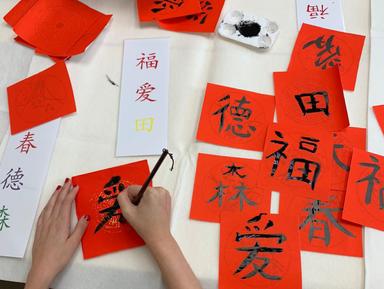 福
福
爱
田
春
德
森
德
田
福
木
林
春
爱
爱